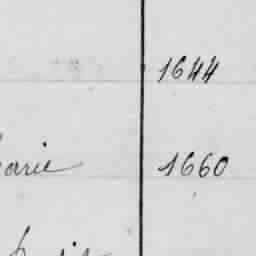 1644
arie 1660